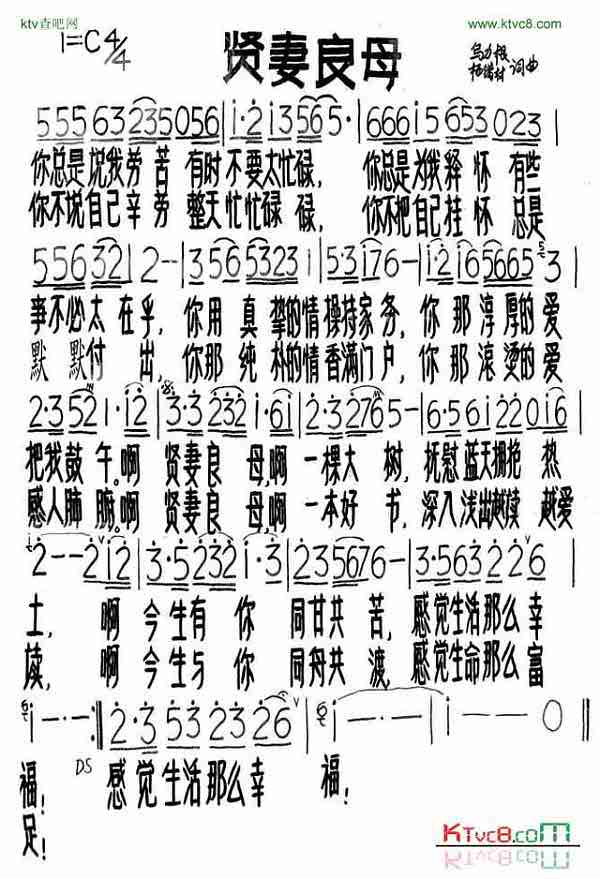 ktv查吧网
www.ktvc8.com
1=C 4/4
贤妻良母
乌力根
词曲
555 63 235 056 | i·2 i3565· | 666 i5 653 023 |
你总是说我劳苦 有时不要太忙碌， 你总是为我释怀 有些
你不说自己辛劳 整天忙忙碌碌， 你不把自己挂怀 总是
55 63 32 | 2-- | 3 235 56 5323 | 5·3 i76- | 6·2 i6 5665 3 |
事不必太在乎，你用真挚的情操持家务，你那淳厚的爱
默默付出，你那纯朴的情香满门户，你那滚烫的爱
2·3 52 1·i2 | 3·3 232 i·6i | 2·3 2765- | 6·56 i2 20 i6 |
把我鼓午。啊 贤妻良母，啊 一棵大树，抚慰蓝天拥抱热
感人肺腑。啊 贤妻良母，啊 一本好书，深入浅出越读越爱
2--2 i2 | 3·3 232 i2 3 | 2 35676- | 3·5 63 532 2 |
土，啊今生有你同甘共苦，感觉生活那么幸
读，啊今生与你同舟共渡，感觉生命那么富
i-·- :| 2·3 53 23 26 | i-·- | i-·- 0 ||
福！ DS 感觉生活那么幸福！
足！
KTvc8.com